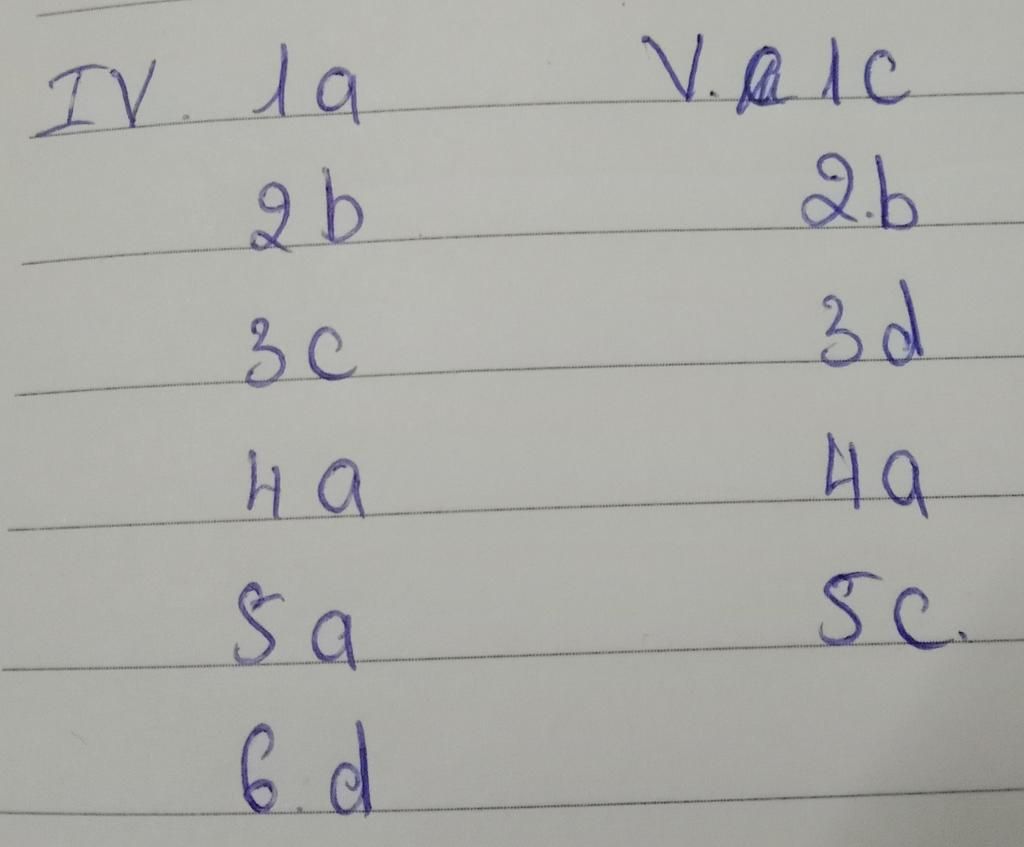 IV. 1a V. 1c
2b 2.b
3c 3d
4a 4a
5a 5c.
6.d